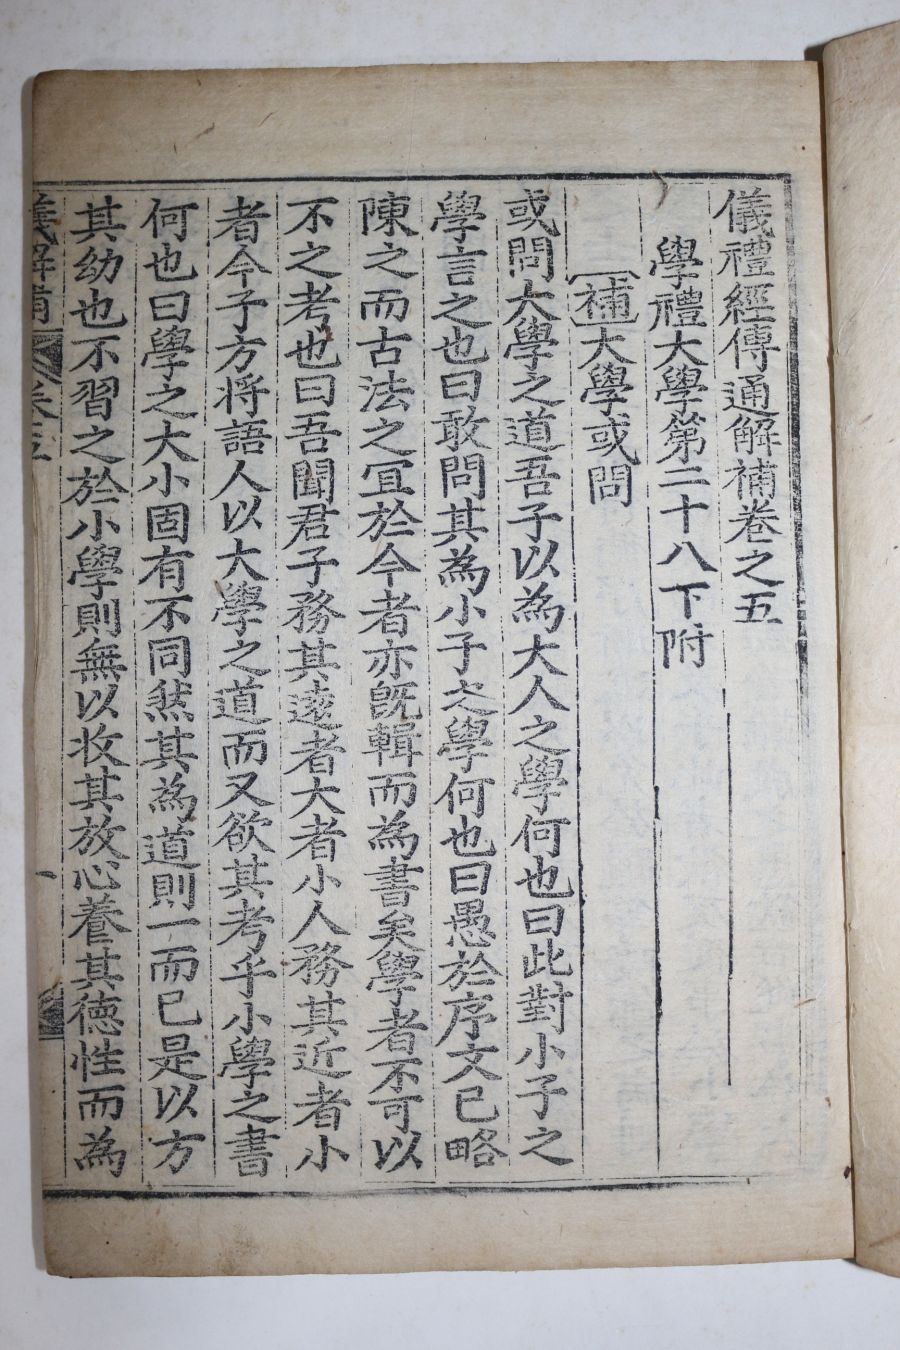 儀禮經傳通解補卷之五
學禮大學第二十八下附
補大學或問
或問大學之道吾子以為大人之學何也曰此對小子之
學言之也曰敢問其為小子之學何也曰愚於序文已略
陳之而古法之冝於今者亦旣輯而為書矣學者不可以
不之考也曰吾聞君子務其遠者大者小人務其近者小
者今子方将語人以大學之道而又欲其考乎小學之書
何也曰學之大小固有不同然其為道則一而已是以方
其幼也不習之於小學則無以收其放心養其德性而為